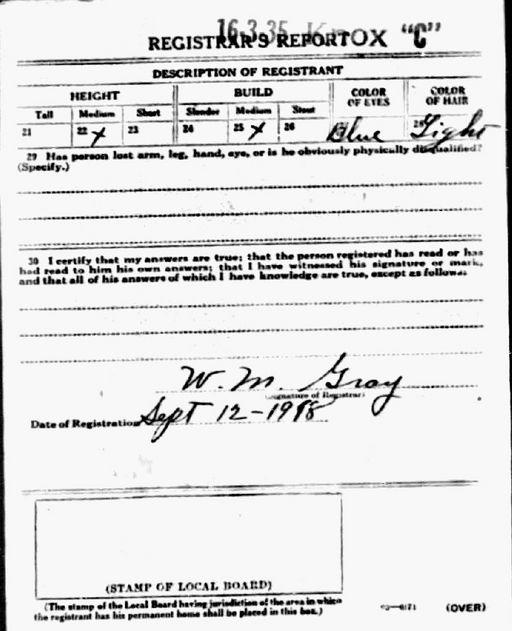 16-3-35 Knox "C"
REGISTRAR'S REPORT
DESCRIPTION OF REGISTRANT
HEIGHT BUILD COLOR OF EYES COLOR OF HAIR
Tall Medium Short Slender Medium Stout
21 22 x 23 24 25 x 26 Blue Light
29 Has person lost arm, leg, hand, eye, or is he obviously physically disqualified?
(Specify.)
30 I certify that my answers are true; that the person registered has read or has
had read to him his own answers; that I have witnessed his signature or mark,
and that all of his answers of which I have knowledge are true, except as follows:
W. M. Gray
(Signature of Registrar)
Date of Registration Sept 12-1918
(STAMP OF LOCAL BOARD)
(The stamp of the Local Board having jurisdiction of the area in which
the registrant has his permanent home shall be placed in this box.)
(OVER)